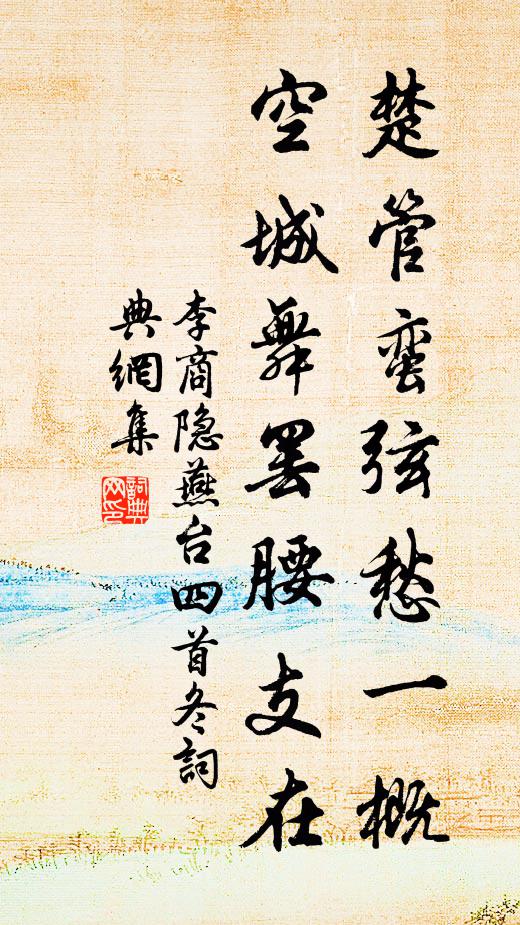 楚管蛮弦愁一概
空城舞罢腰支在
李商隐燕台四首冬詞
典網集
詞典网印